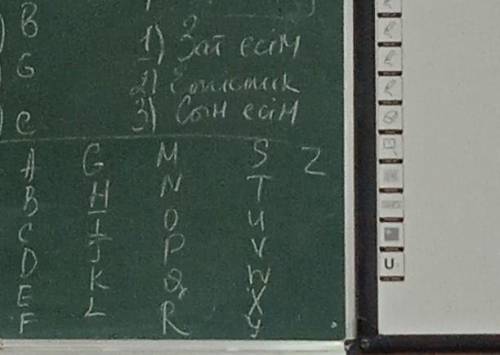 B
G
C
1) Зат есім
2) Еліктеик
3) Сын есім
A G M S Z
B H N T
C I O U
D J P V
E K Q W
F L R X
Y
U